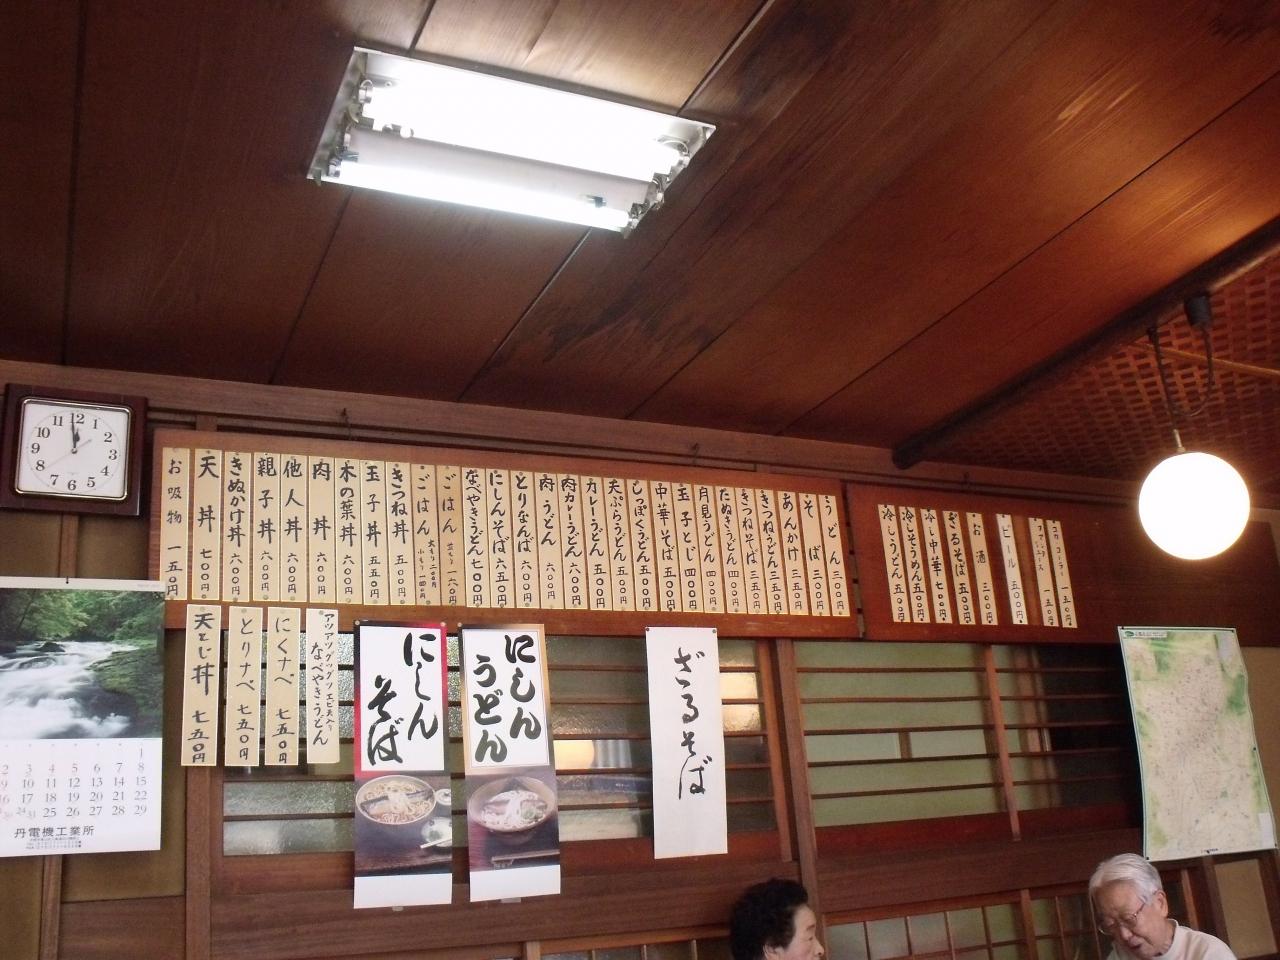 うどん 三〇〇円
そば 三〇〇円
あんかけ 三五〇円
きつねうどん 三五〇円
きつねそば 三五〇円
たぬきうどん 四〇〇円
月見うどん 四〇〇円
玉子とじ 四〇〇円
中華そば 五五〇円
しっぽくうどん 五五〇円
天ぷらうどん 五五〇円
カレーうどん 五五〇円
肉カレーうどん 六〇〇円
肉うどん 六〇〇円
とりなんば 六〇〇円
にしんそば 六五〇円
なべやきうどん 七〇〇円
ごはん 一六〇円
ごはん 大もり 二〇〇円 小もり 一四〇円
きつね丼 五〇〇円
玉子丼 五五〇円
木の葉丼 六〇〇円
肉丼 六〇〇円
他人丼 六〇〇円
親子丼 六〇〇円
きぬかけ丼 六〇〇円
天丼 七〇〇円
お吸物 一五〇円
コカコーラー 一五〇円
ファンタジュース 一五〇円
ビール 五〇〇円
お酒 三〇〇円
ざるそば 五五〇円
冷し中華 七〇〇円
冷しそうめん 五五〇円
冷しうどん 五五〇円
アツアツグツグツエビ天入り
なべやきうどん
にくナベ 七五〇円
とりナベ 七五〇円
天とじ丼 七五〇円
にしん
そば
にしん
うどん
ざるそば
12 1 2 3 4 5 6 7 8 9 10 11
1
2 3 4 5 6 7 8
9 10 11 12 13 14 15
16 17 18 19 20 21 22
23/30 24/31 25 26 27 28 29
丹電機工業所